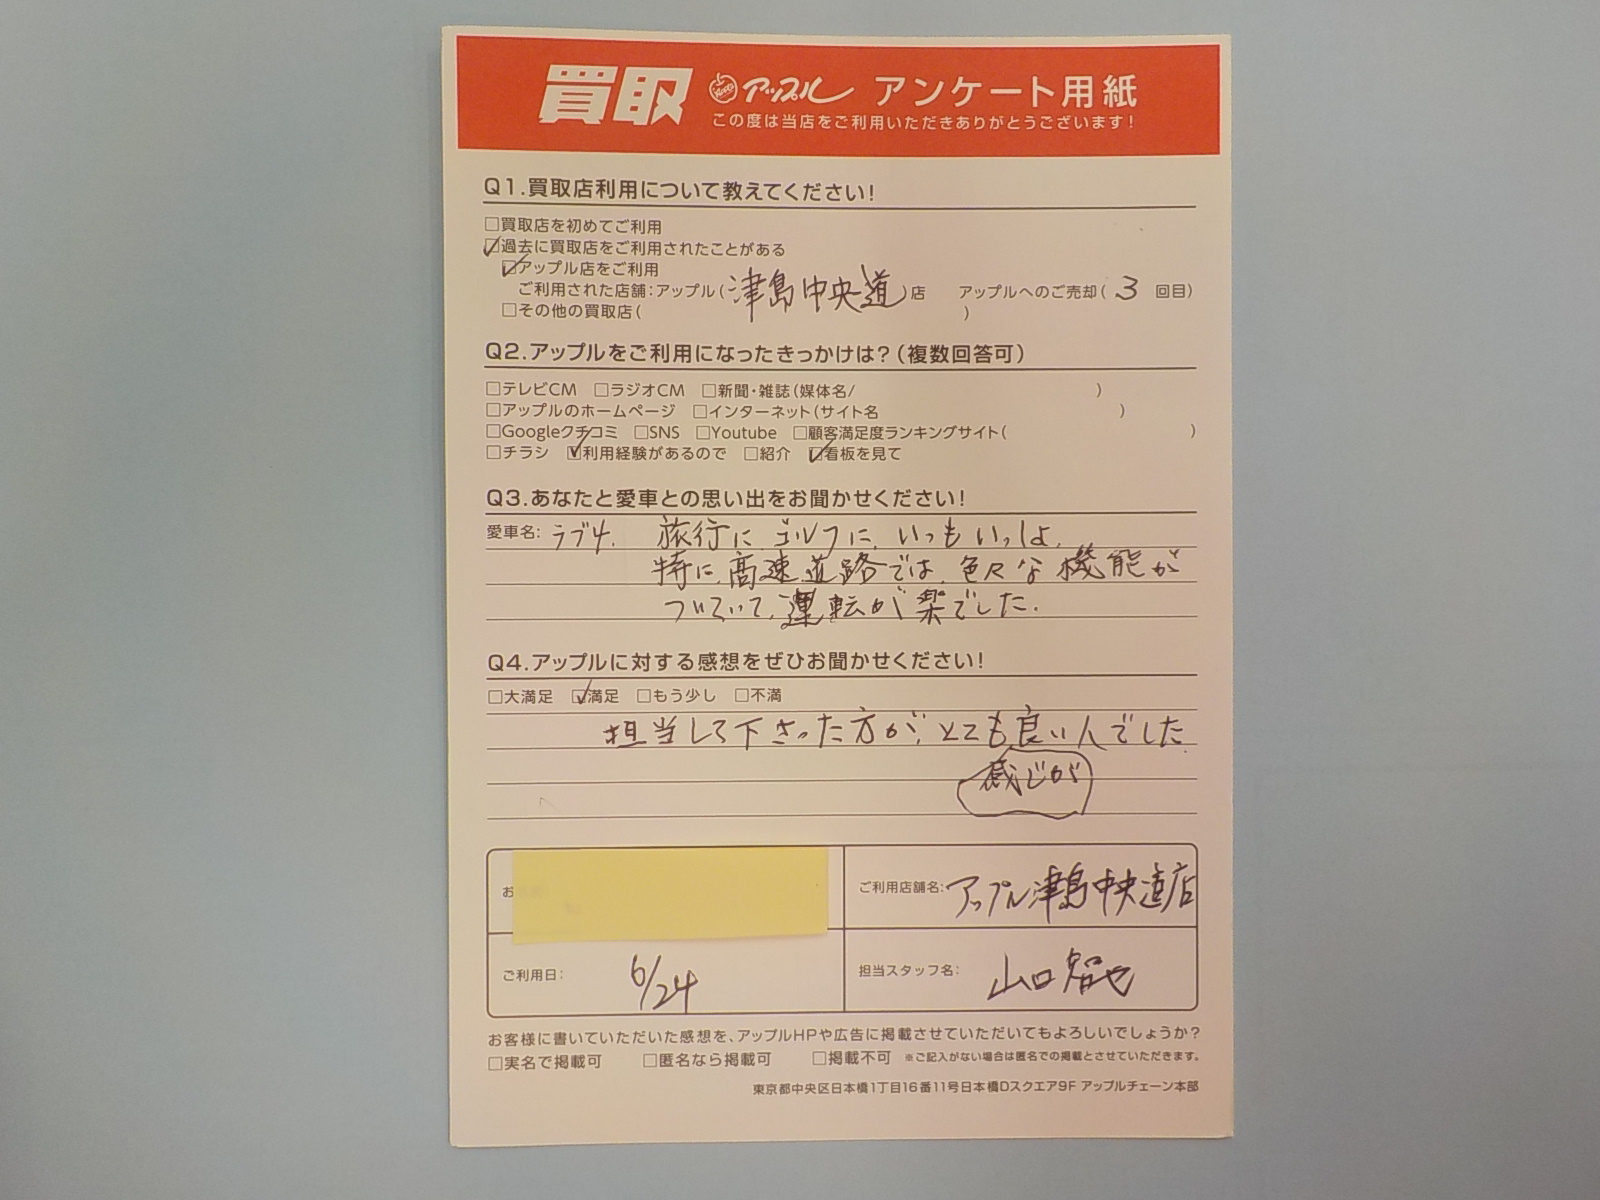 買取 アップル アンケート用紙
この度は当店をご利用いただきありがとうございます!
Q1.買取店利用について教えてください!
□買取店を初めてご利用
☑過去に買取店をご利用されたことがある
☑アップル店をご利用
ご利用された店舗:アップル(津島中央道)店 アップルへのご売却( 3 回目)
□その他の買取店( )
Q2.アップルをご利用になったきっかけは?(複数回答可)
□テレビCM □ラジオCM □新聞・雑誌(媒体名/ )
□アップルのホームページ □インターネット(サイト名 )
□Googleクチコミ □SNS □Youtube □顧客満足度ランキングサイト( )
□チラシ ☑利用経験があるので □紹介 ☑看板を見て
Q3.あなたと愛車との思い出をお聞かせください!
愛車名: ラブ4. 旅行に、ゴルフに、いつもいっしょ。
特に、高速道路では、色々な機能が
ついていて、運転が楽でした。
Q4.アップルに対する感想をぜひお聞かせください!
□大満足 ☑満足 □もう少し □不満
担当して下さった方が、とても良い人でした。
感じが
お
ご利用店舗名: アップル津島中央道店
ご利用日: 6/24
担当スタッフ名: 山口智也
お客様に書いていただいた感想を、アップルHPや広告に掲載させていただいてもよろしいでしょうか?
□実名で掲載可 □匿名なら掲載可 □掲載不可 ※ご記入がない場合は匿名での掲載とさせていただきます。
東京都中央区日本橋1丁目16番11号日本橋Dスクエア9F アップルチェーン本部